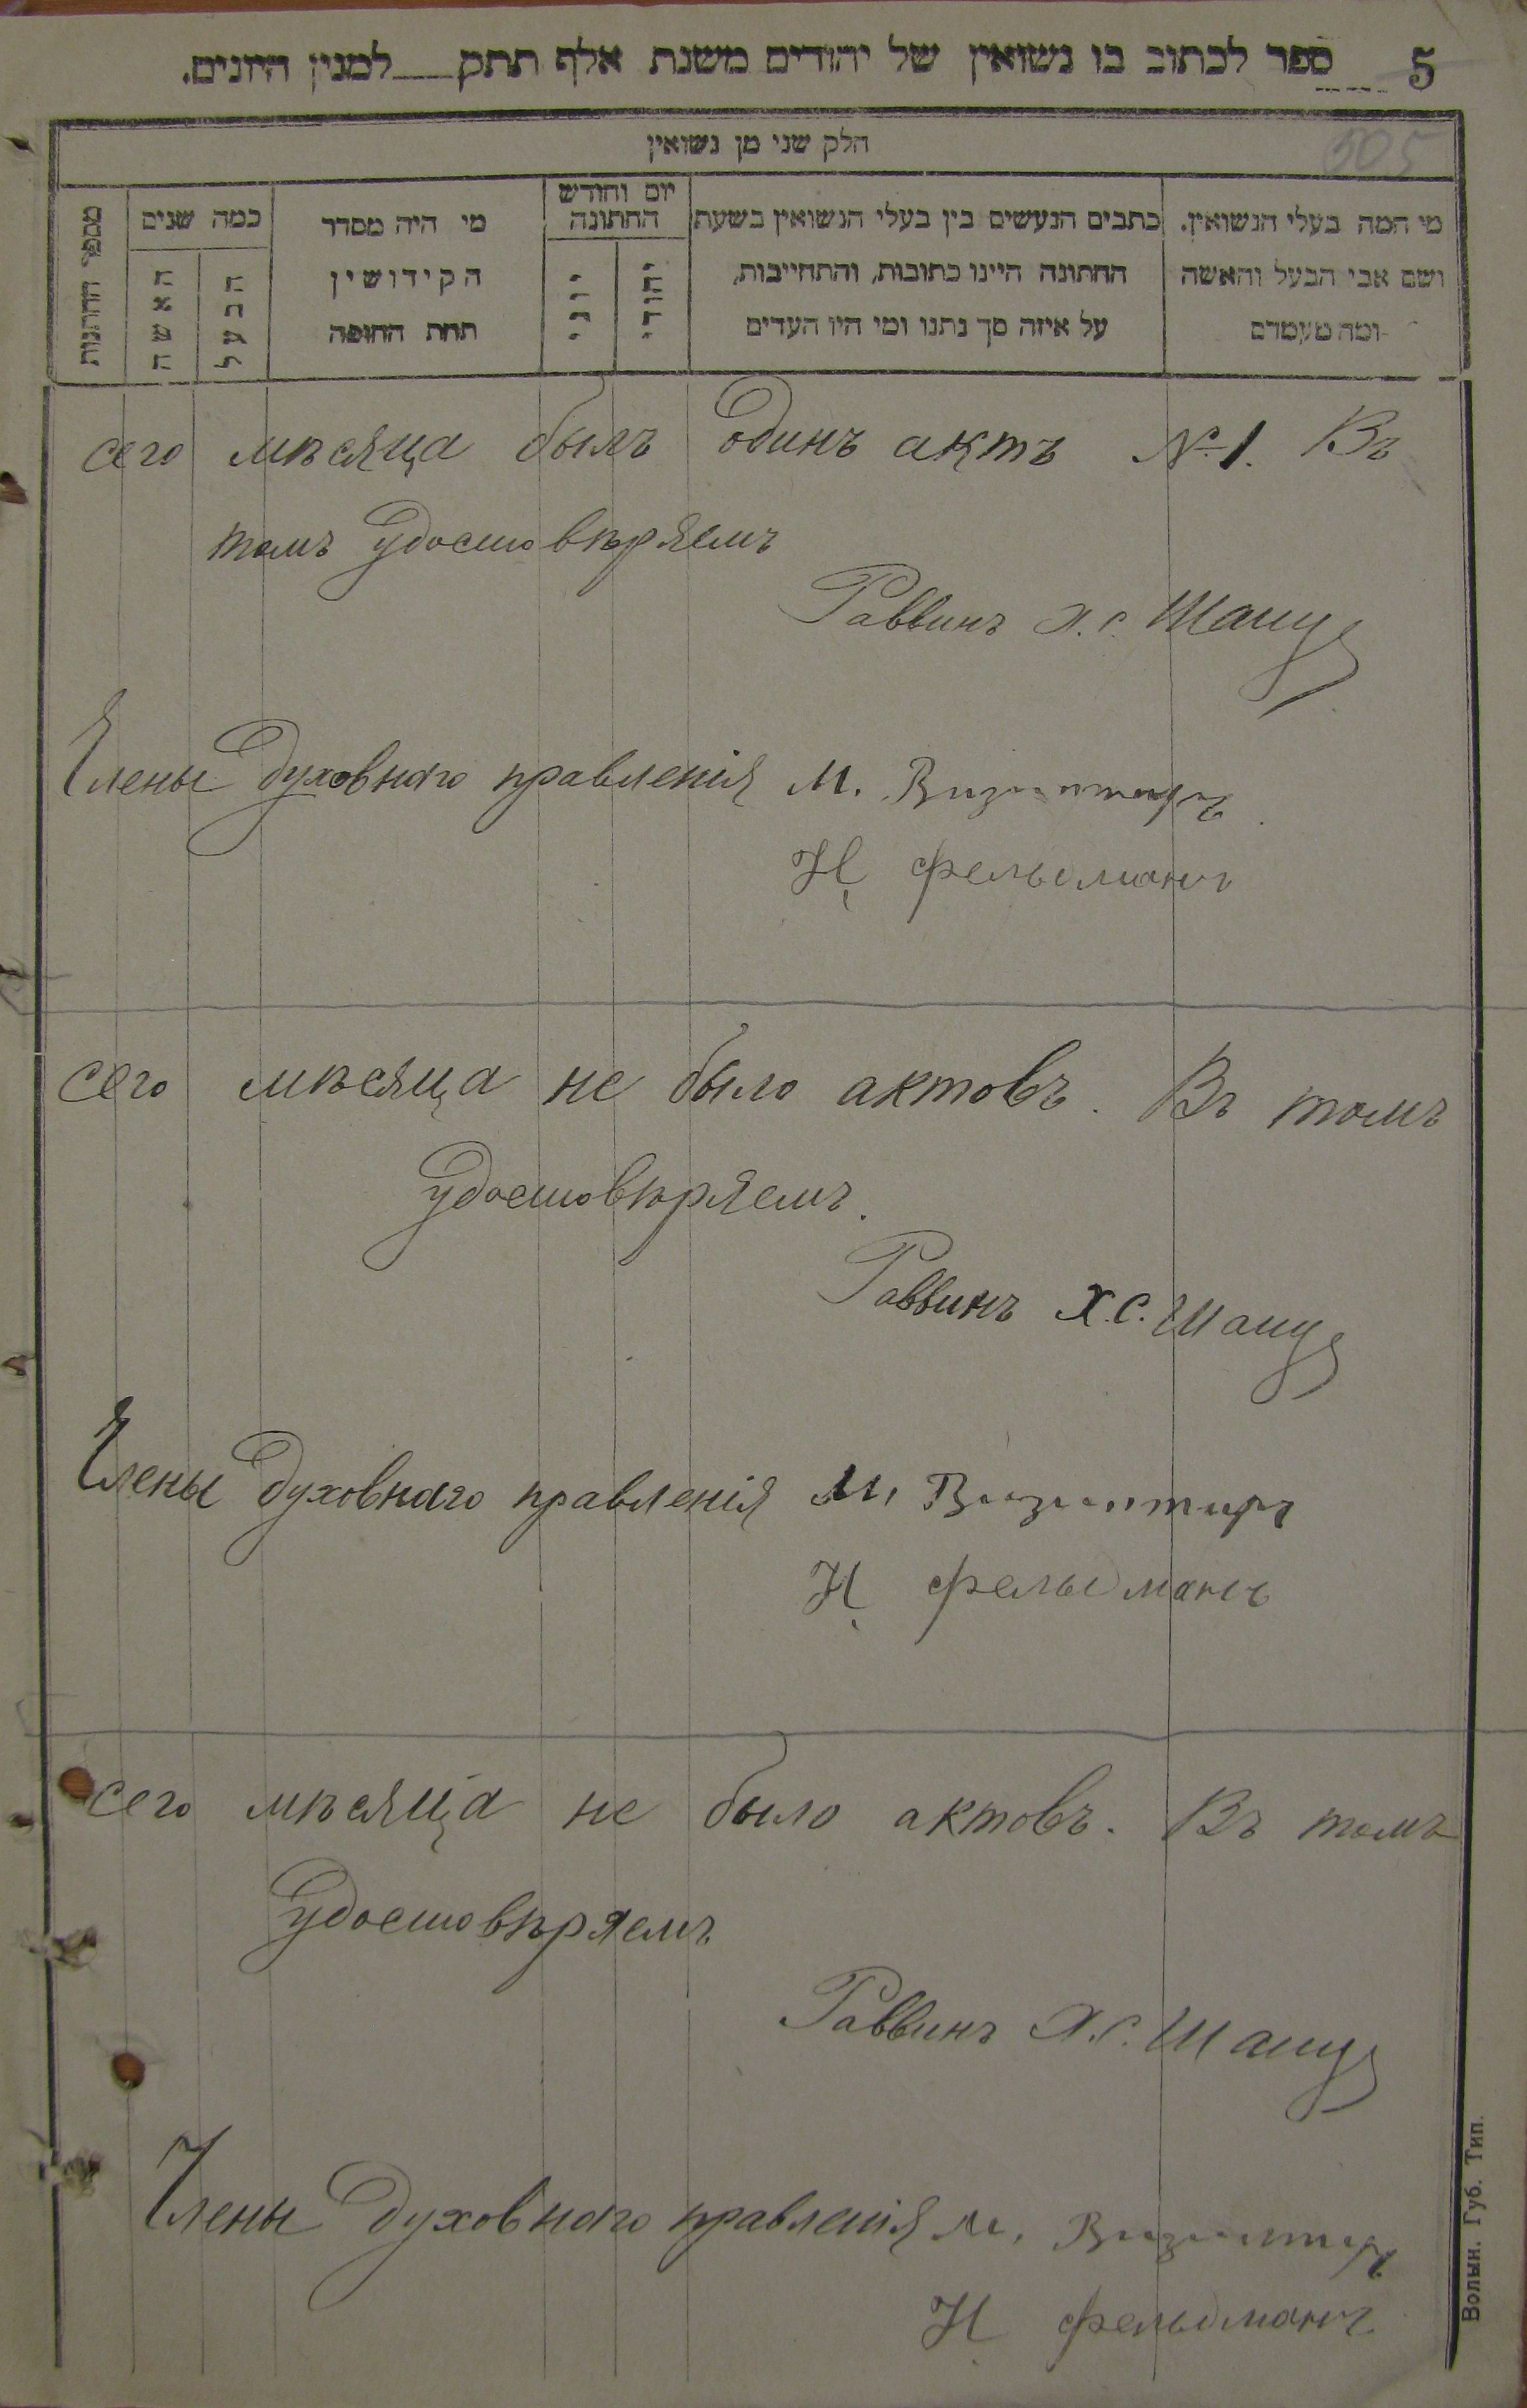 5 ספר לכתוב בו נשואין של יהודים משנת אלף תתק למנין היונים.
305
חלק שני מן נשואין
מי המה בעלי הנשואין. ושם אבי הבעל והאשה ומה מעמדם
כתבים הנעשים בין בעלי הנשואין בשעת החתונה היינו כתובות, והתחייבות, על איזה סך נתנו ומי היו העדים
יום וחודש החתונה
יהודי
יוני
מי היה מסדר הקידושין תחת החופה
כמה שנים
הבעל
האשה
מספר החתנות
сего мѣсяца былъ одинъ актъ №1. Въ
томъ удостовѣряемъ
Раввинъ Х.С. Шацъ
Члены духовнаго правленія М. Визинтиръ
Н Фельдманъ
сего мѣсяца не было актовъ. Въ томъ
удостовѣряемъ.
Раввинъ Х.С. Шацъ
Члены духовнаго правленія М. Визинтиръ
Н Фельдманъ
сего мѣсяца не было актовъ. Въ томъ
удостовѣряемъ
Раввинъ Х.С. Шацъ
Члены духовнаго правленія М. Визинтиръ
Н Фельдманъ
Волын. Губ. Тип.